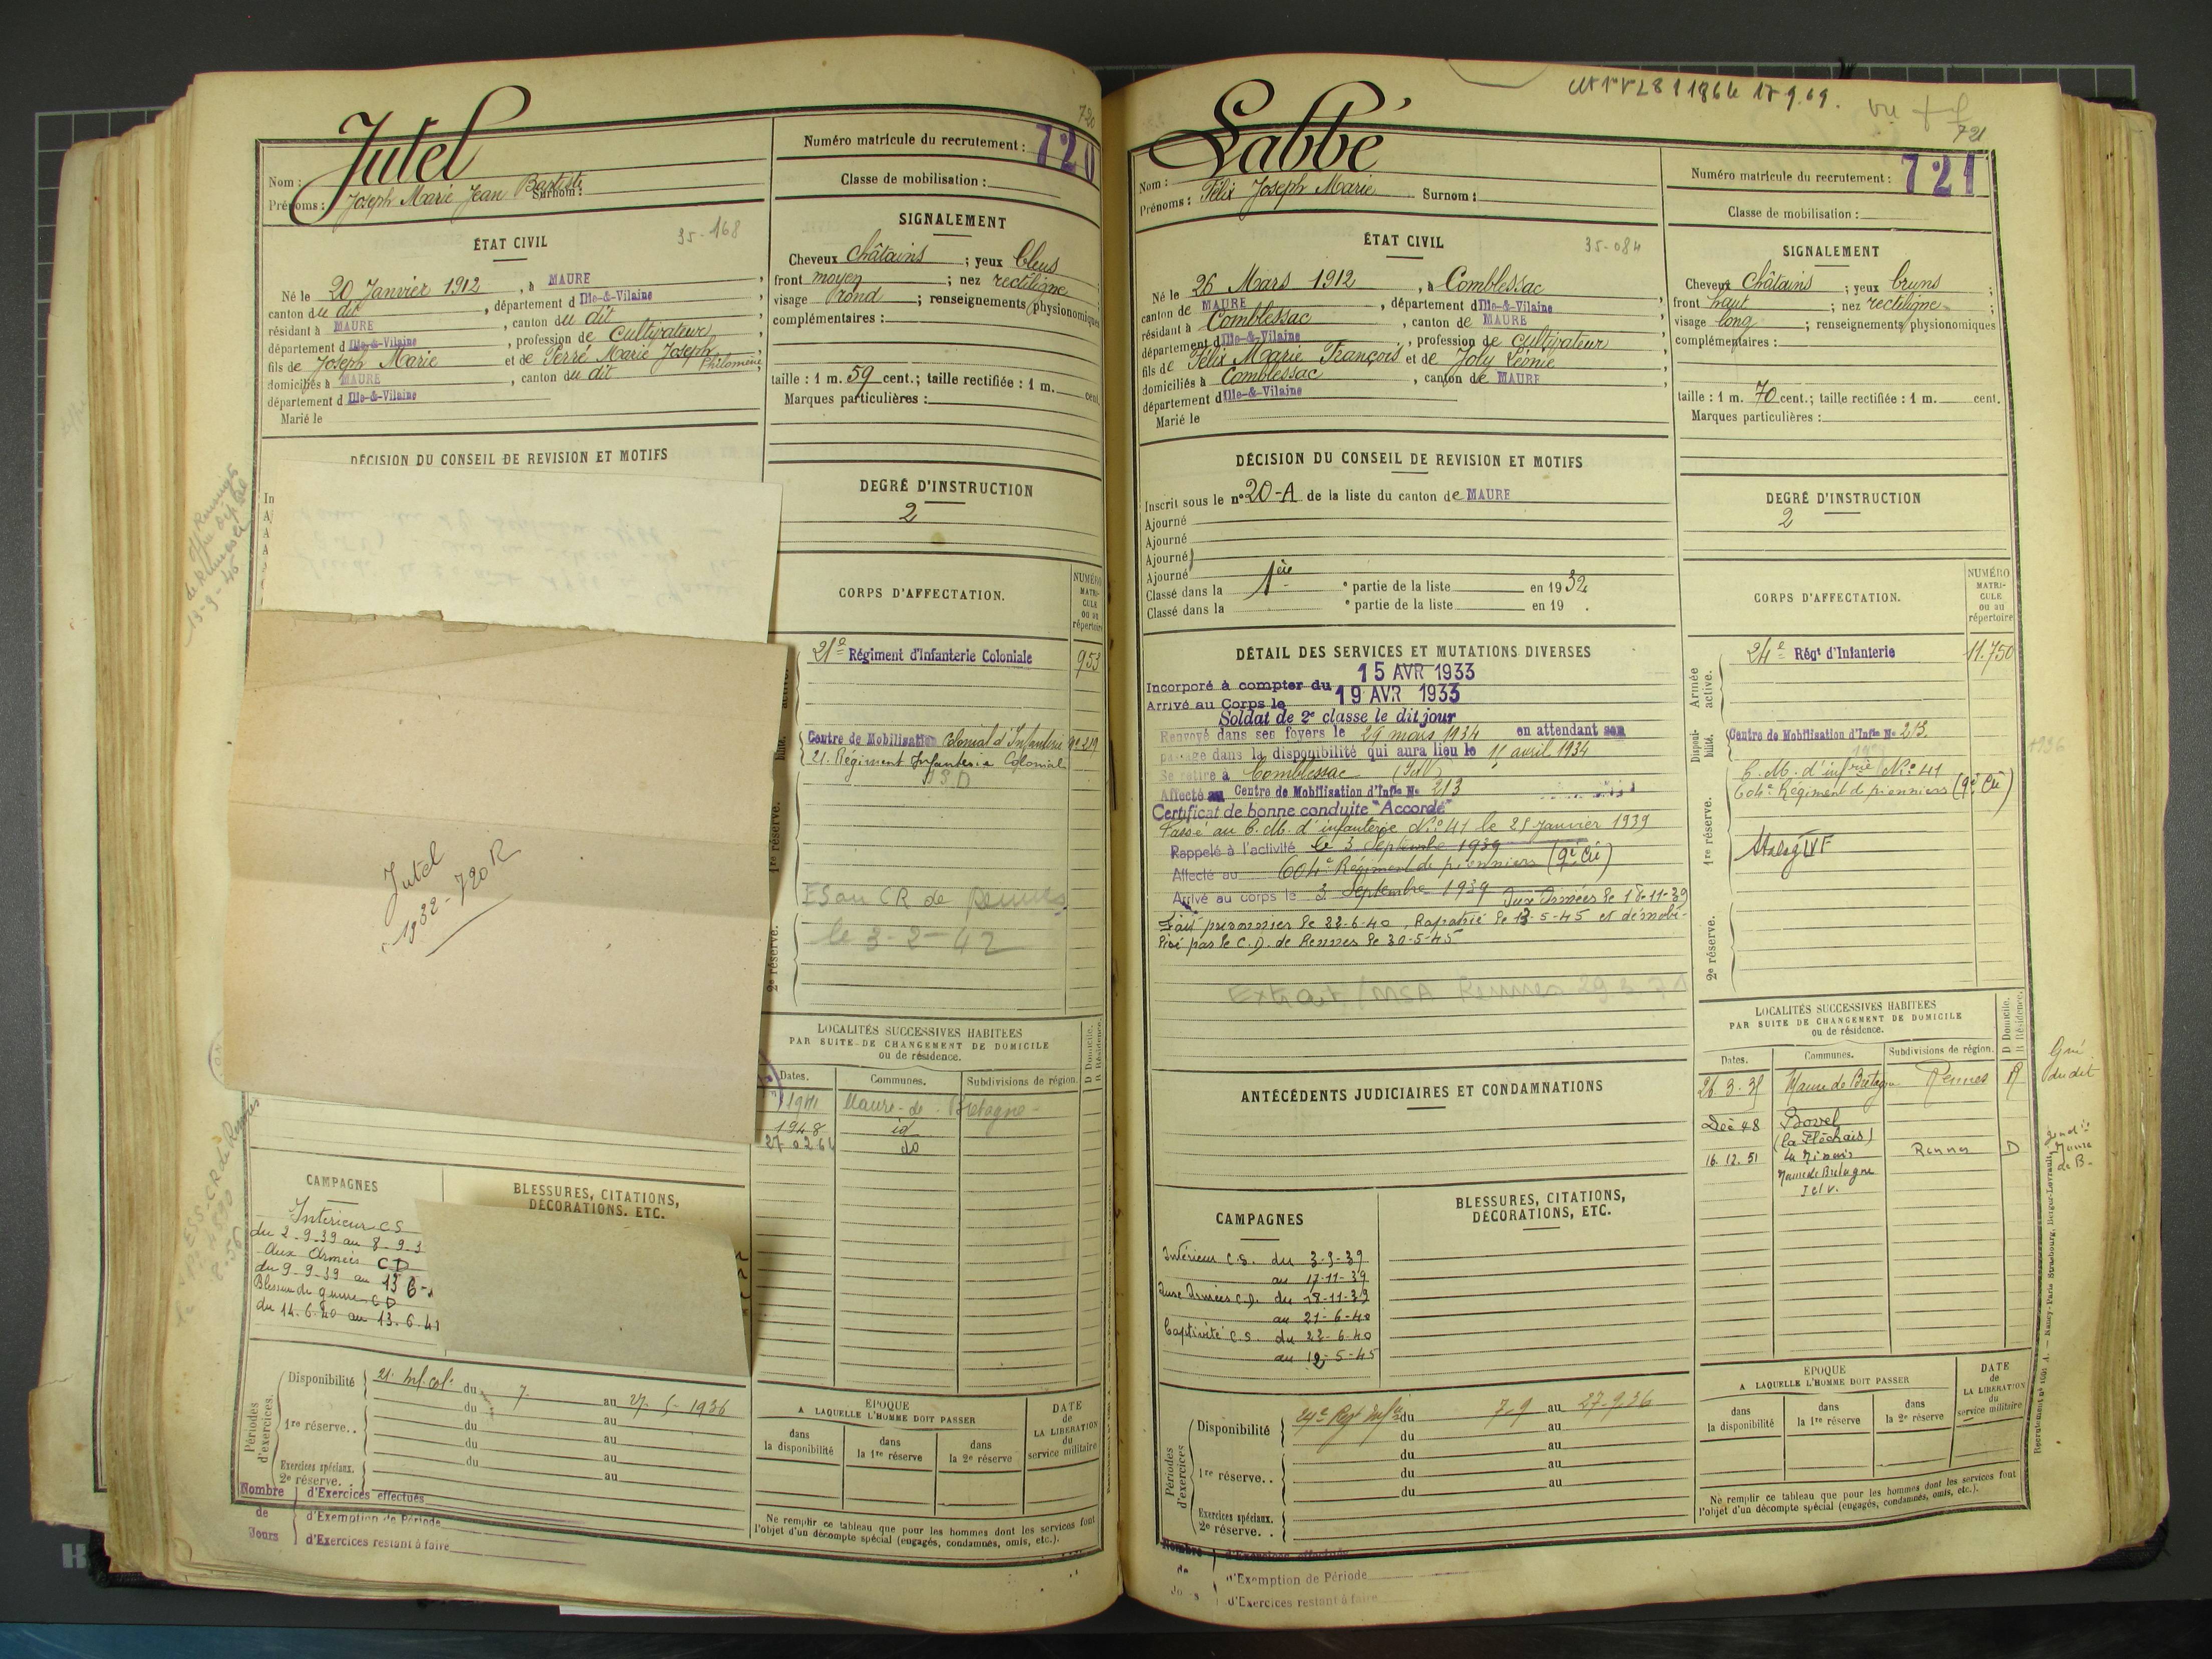 720
Jutel
Nom :
Prénoms : Joseph Marie Jean Baptiste Surnom :
Numéro matricule du recrutement : 720
Classe de mobilisation :
ÉTAT CIVIL
35-168
Né le 20 Janvier 1912, à MAURE
canton du dit, département d Ille-&-Vilaine
résidant à MAURE, canton du dit
département d Ille-&-Vilaine, profession de Cultivateur
fils de Joseph Marie et de Perré Marie Joseph Philomène
domiciliés à MAURE, canton du dit
département d Ille-&-Vilaine
Marié le
SIGNALEMENT
Cheveux châtains ; yeux bleus
front moyen ; nez rectiligne
visage rond ; renseignements physionomiques
complémentaires :
taille : 1 m. 59 cent.; taille rectifiée : 1 m. cent.
Marques particulières :
DÉCISION DU CONSEIL DE REVISION ET MOTIFS
DEGRÉ D'INSTRUCTION
2
Jutel
1932-720 R
CORPS D'AFFECTATION.
NUMÉRO MATRI-CULE ou au répertoire
21e Régiment d'Infanterie Coloniale 953
Centre de Mobilisation Colonial d'Infanterie
21. Régiment Infanterie Colonial
1re réserve.
2e réserve.
CR de Rennes
le 3-2-42
LOCALITÉS SUCCESSIVES HABITÉES
PAR SUITE DE CHANGEMENT DE DOMICILE
ou de résidence.
D Domicile.
R Résidence.
Dates. Communes. Subdivisions de région.
Maure-de-Bretagne
1948 id
do
CAMPAGNES
Intérieur CS
du 2-9-39 au 8-9-3
Aux Armées CD
du 9-9-39 au 13 6-
Blessure de guerre CD
du 14-6-40 au 13-6-41
BLESSURES, CITATIONS,
DÉCORATIONS, ETC.
Périodes d'exercices.
Disponibilité 21. Inf. col. du 7. au 27 1936
1re réserve. . du au
du au
du au
Exercices spéciaux. du au
2e réserve. . au
Nombre de Jours
d'Exercices effectués
d'Exemption de Période
d'Exercices restant à faire
EPOQUE
A LAQUELLE L'HOMME DOIT PASSER
dans la disponibilité
dans la 1re réserve
dans la 2e réserve
DATE de LA LIBÉRATION du service militaire
Ne remplir ce tableau que pour les hommes dont les services font
l'objet d'un décompte spécial (engagés, condamnés, omis, etc.).
17.9.69.
vu
721
Labbé
Nom :
Prénoms : Félix Joseph Marie Surnom :
Numéro matricule du recrutement : 721
Classe de mobilisation :
ÉTAT CIVIL
35-084
Né le 26 Mars 1912, à Comblessac
canton de MAURE, département d Ille-&-Vilaine
résidant à Comblessac, canton de MAURE
département d Ille-&-Vilaine, profession de cultivateur
fils de Félix Marie François et de Joly Léonie
domiciliés à Comblessac, canton de MAURE
département d Ille-&-Vilaine
Marié le
SIGNALEMENT
Cheveux châtains ; yeux bruns
front haut ; nez rectiligne
visage long ; renseignements physionomiques
complémentaires :
taille : 1 m. 70 cent.; taille rectifiée : 1 m. cent.
Marques particulières :
DÉCISION DU CONSEIL DE REVISION ET MOTIFS
Inscrit sous le n° 20-A de la liste du canton de MAURE
Ajourné
Ajourné
Ajourné
Ajourné
Classé dans la 1ère partie de la liste en 1932
Classé dans la e partie de la liste en 19 .
DEGRÉ D'INSTRUCTION
2
DÉTAIL DES SERVICES ET MUTATIONS DIVERSES
Incorporé à compter du 15 AVR 1933
Arrivé au Corps le 19 AVR 1933
Soldat de 2e classe le dit jour
Renvoyé dans ses foyers le 29 mars 1934 en attendant son
passage dans la disponibilité qui aura lieu le avril 1934
Se retire à Comblessac (I&V)
Affecté au Centre de Mobilisation d'Infie No 213
Certificat de bonne conduite "Accordé"
Passé au C. M. d'infanterie No 41 le Janvier 1939
Rappelé à l'activité le 3 Septembre 1939
Affecté au 604e Régiment de pionniers (9e Cie)
Arrivé au corps le 3 Septembre 1939 Aux Armées le 18-11-39
Fait prisonnier le 22-6-40, Rapatrié le 13-5-45 et démobi-
lisé par le C.D. de Rennes le 30-5-45
Extrait / MSA Rennes
CORPS D'AFFECTATION.
NUMÉRO MATRI-CULE ou au répertoire
Armée active.
24e Régt d'Infanterie 11.750
Disponi-bilité.
Centre de Mobilisation d'Infie No 213.
1re réserve.
C. M. d'infrie No 41
604e Régiment de pionniers (9e Cie)
Stalag IV F
2e réserve.
ANTÉCÉDENTS JUDICIAIRES ET CONDAMNATIONS
LOCALITÉS SUCCESSIVES HABITÉES
PAR SUITE DE CHANGEMENT DE DOMICILE
ou de résidence.
D Domicile.
R Résidence.
Dates. Communes. Subdivisions de région.
Maure de Bretagne Rennes R
Déc 48 Bovel
16.12.51 Rennes D
Maure de Bretagne
I et V.
CAMPAGNES
Intérieur C.S. du 3-9-39
au 17-11-39
Aux Armées C.D. du 18-11-39
au 21-6-40
Captivité C.S. du 22-6-40
au 12-5-45
BLESSURES, CITATIONS,
DÉCORATIONS, ETC.
Périodes d'exercices
Disponibilité 24e Regt Infie du 7-9 au 27-9-36
du au
du au
1re réserve. . du au
du au
Exercices spéciaux.
2e réserve. .
d'Exemption de Période
d'Exercices restant à faire
EPOQUE
A LAQUELLE L'HOMME DOIT PASSER
dans la disponibilité
dans la 1re réserve
dans la 2e réserve
DATE de LA LIBÉRATION du service militaire
Ne remplir ce tableau que pour les hommes dont les services font
l'objet d'un décompte spécial (engagés, condamnés, omis, etc.).